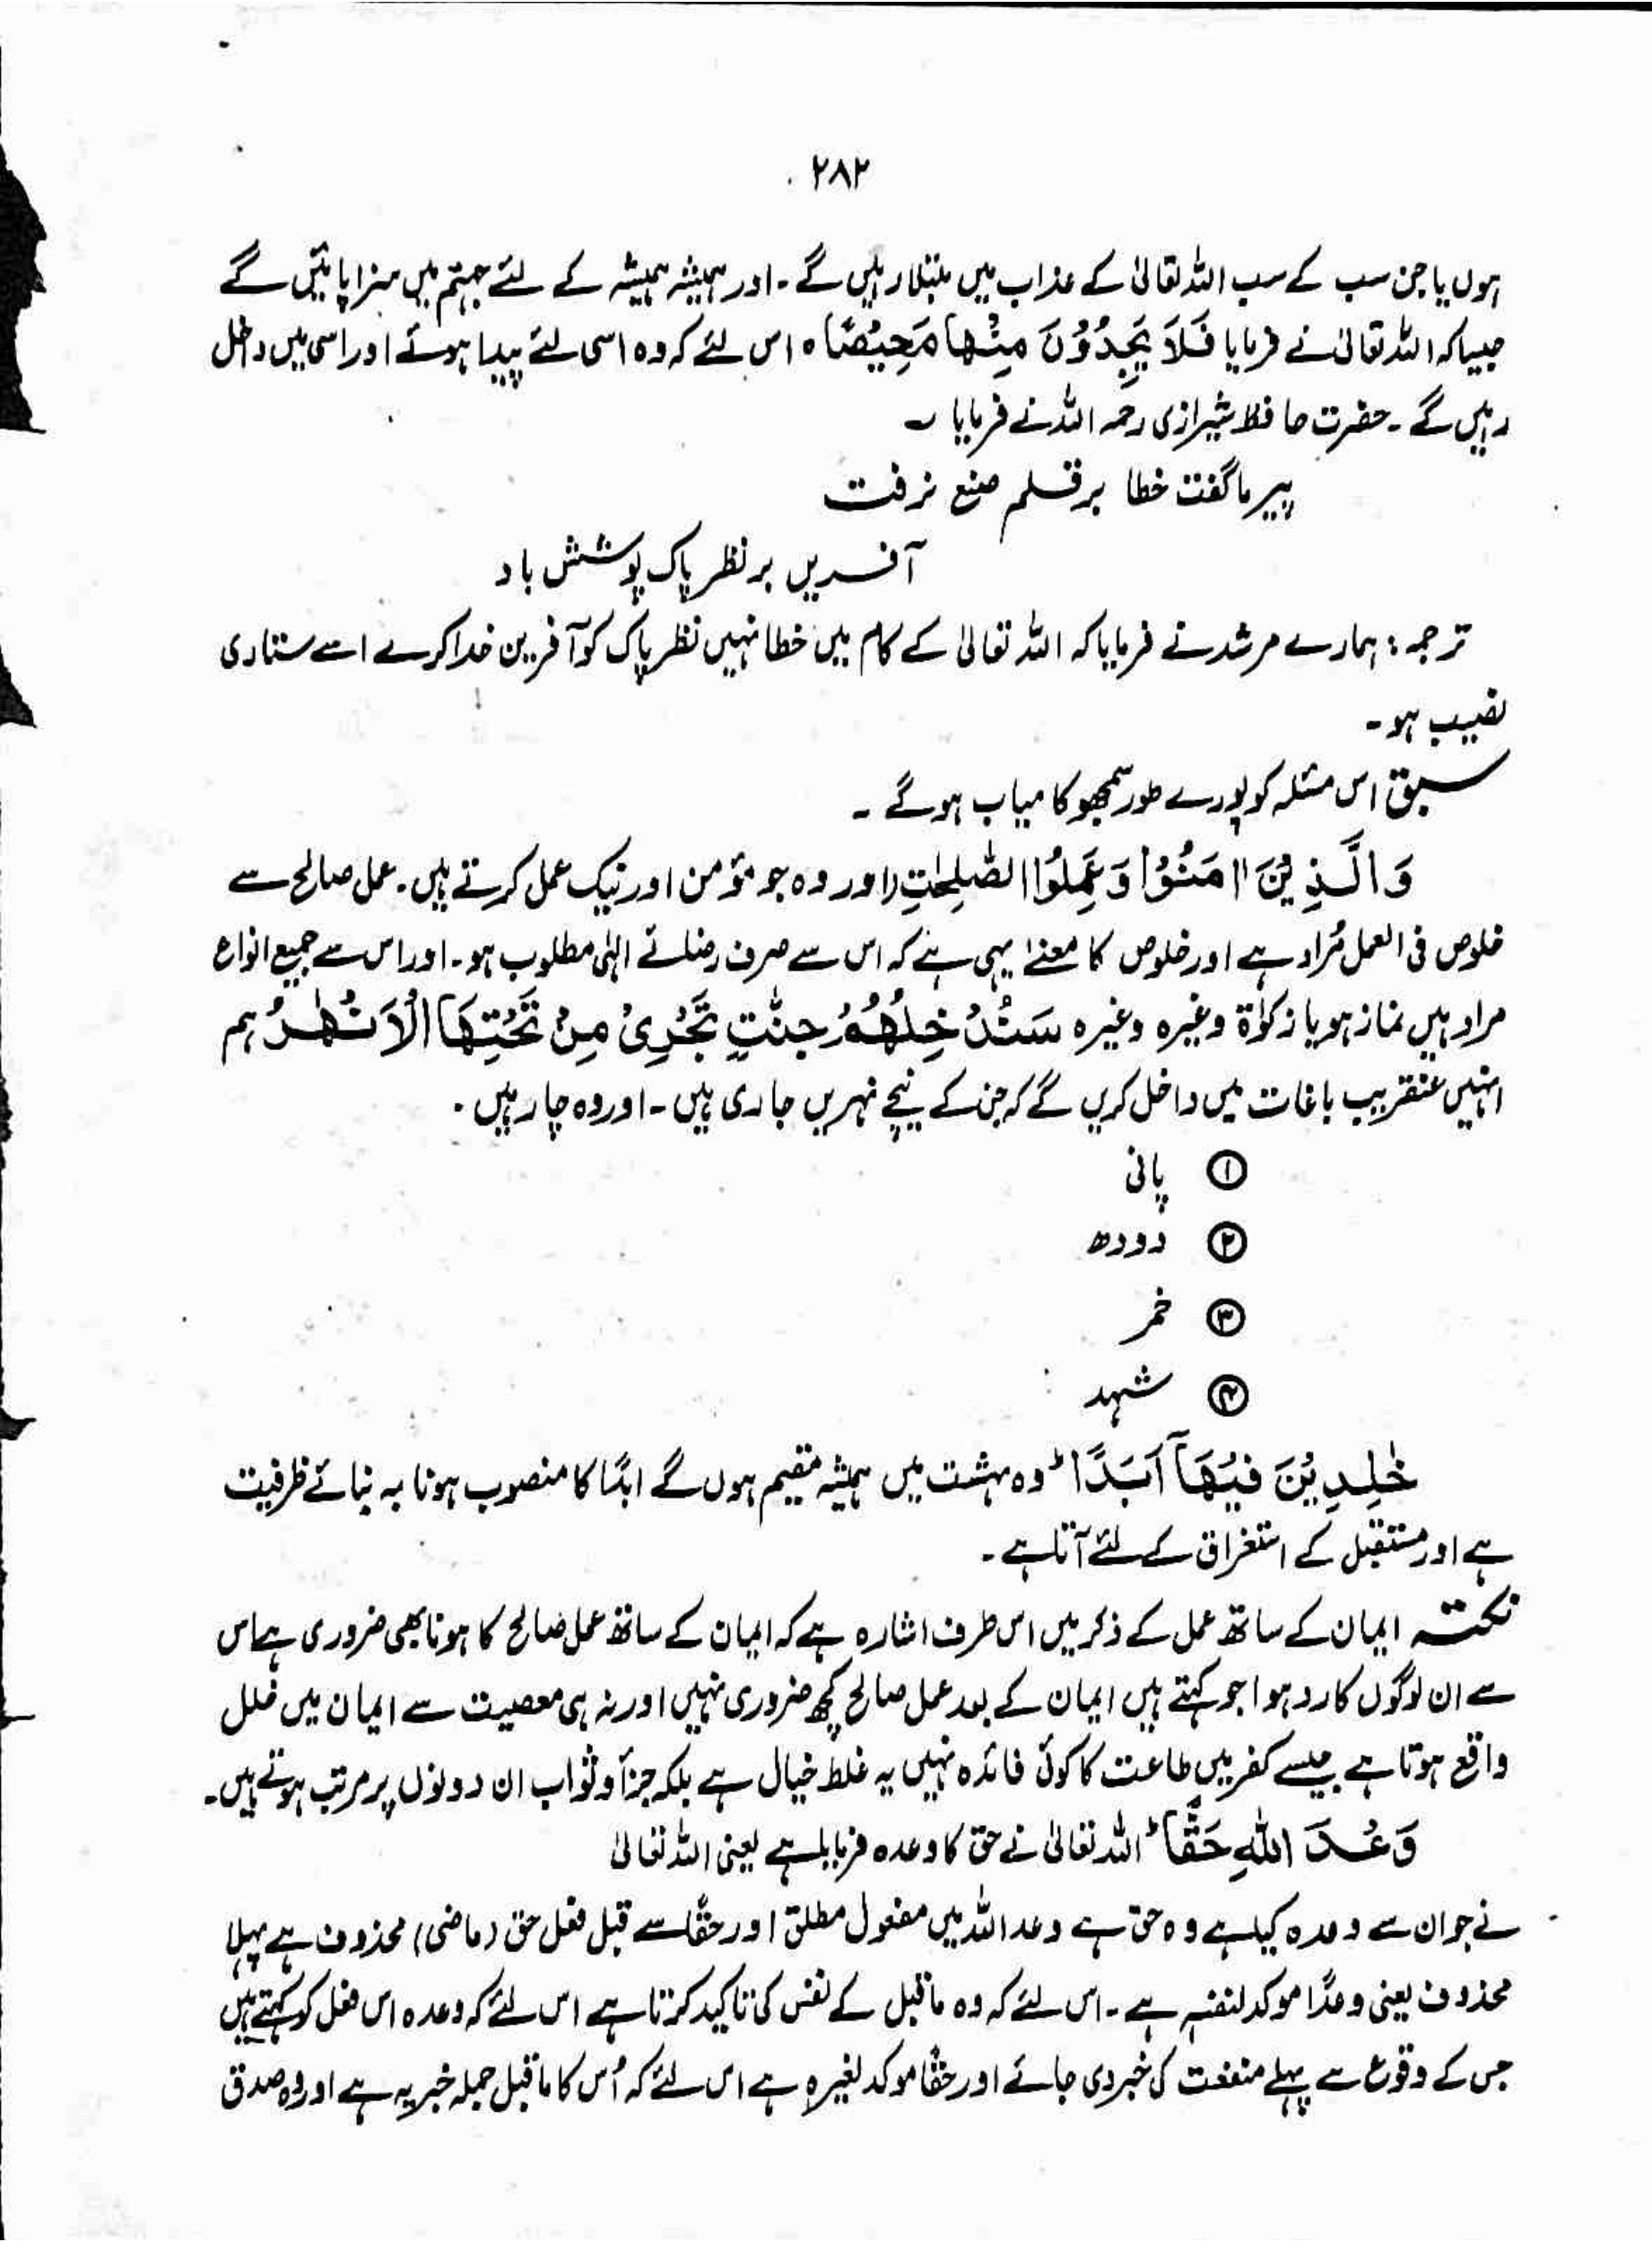 ۲۸۲
ہوں یا جن سب کے سب اللہ تعالیٰ کے عذاب میں مبتلا رہیں گے ۔ اور ہمیشہ ہمیشہ کے لئے جہنم میں سزا پائیں گے
جیسا کہ اللہ تعالیٰ نے فرمایا فَلَا یَجِدُوْنَ مِنْہَا مَحِیْصًا ہ اس لئے کہ وہ اسی لئے پیدا ہوئے اور اسی میں داخل
رہیں گے ۔ حضرت حافظ شیرازی رحمہ اللہ نے فرمایا ؎
پیر ما گفت خطا بر قلم صنع نرفت
آفریں بر نظر پاک پوشش باد
ترجمہ : ہمارے مرشد نے فرمایا کہ اللہ تعالیٰ کے کام میں خطا نہیں نظر پاک کو آفرین خدا کرے اسے ستاری
نصیب ہو ۔
سبق اس مسئلہ کو پورے طور سمجھو کامیاب ہوگے ۔
وَالَّذِیْنَ اٰمَنُوْا وَعَمِلُوا الصّٰلِحٰتِ اور وہ جو مؤمن اور نیک عمل کرتے ہیں ۔ عمل صالح سے
خلوص فی العمل مُراد ہے اور خلوص کا معنےٰ یہی ہے کہ اس سے صرف رضائے الٰہی مطلوب ہو ۔ اور اس سے جمیع انواع
مراد ہیں نماز ہو یا زکوٰۃ وغیرہ وغیرہ سَنُدْخِلُھُمْ جَنّٰتٍ تَجْرِیْ مِنْ تَحْتِہَا الْاَنْھٰرُ ہم
انہیں عنقریب باغات میں داخل کریں گے کہ جن کے نیچے نہریں جاری ہیں ۔ اور وہ چار ہیں ۔
① پانی
② دودھ
③ خمر
④ شہد
خٰلِدِیْنَ فِیْھَآ اَبَدًا ؕ وہ بہشت میں ہمیشہ مقیم ہوں گے ابدًا کا منصوب ہونا بہ بنائے ظرفیت
ہے اور مستقبل کے استغراق کے لئے آتا ہے ۔
نکتہ ایمان کے ساتھ عمل کے ذکر میں اس طرف اشارہ ہے کہ ایمان کے ساتھ عمل صالح کا ہونا بھی ضروری ہے اس
سے ان لوگوں کا رد ہوا جو کہتے ہیں ایمان کے بعد عمل صالح کچھ ضروری نہیں اور نہ ہی معصیت سے ایمان میں خلل
واقع ہوتا ہے جیسے کفر میں طاعت کا کوئی فائدہ نہیں یہ غلط خیال ہے بلکہ جزأ و ثواب ان دونوں پر مرتب ہوتے ہیں ۔
وَعْدَ اللّٰہِ حَقًّا ؕ اللہ تعالیٰ نے حق کا وعدہ فرمایا ہے یعنی اللہ تعالیٰ
نے جو ان سے وعدہ کیا ہے وہ حق ہے وعد اللہ میں مفعول مطلق اور حقًّا سے قبل فعل حق (ماضی) محذوف ہے پہلا
محذوف یعنی وعدًا موکد لنفسہٖ ہے ۔ اس لئے کہ وہ ماقبل کے نفس کی تاکید کرتا ہے اس لئے کہ وعدہ اس فعل کو کہتے ہیں
جس کے وقوع سے پہلے منفعت کی خبر دی جائے اور حقًا موکد لغیرہٖ ہے اس لئے کہ اُس کا ماقبل جملہ خبریہ ہے اور وہ صدق